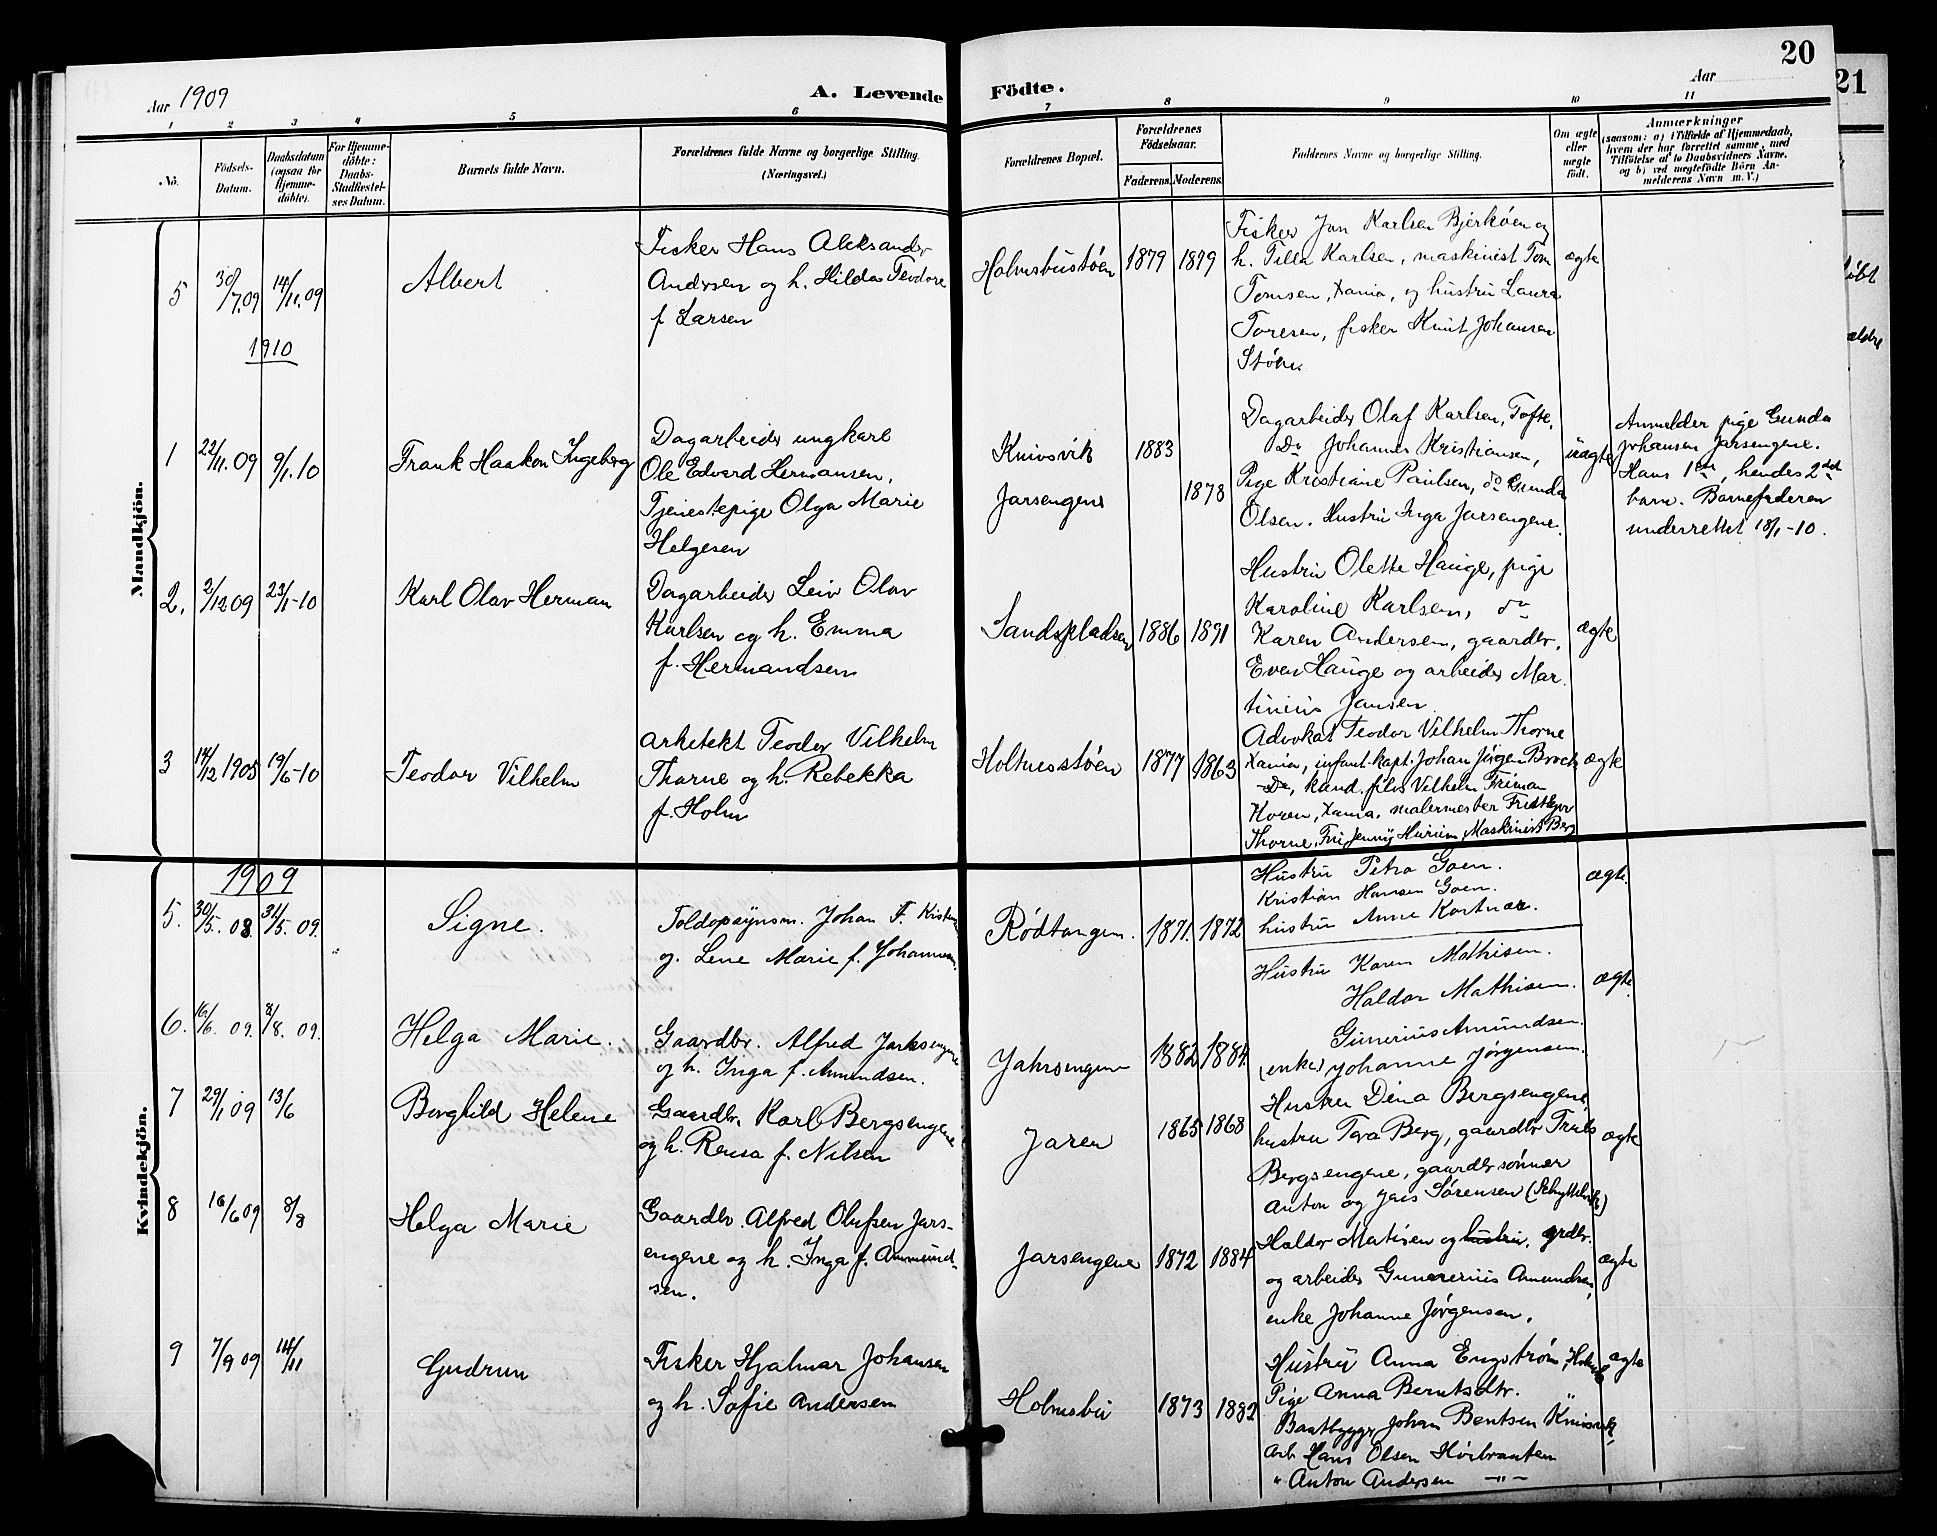 20
21
Aar 1909
A. Levende Födte.
Aar
1 2 3 4 5 6 7 8 9 10 11
No.
Födsels-Datum.
Daabsdatum (ogsaa for Hjemmedöbte).
For Hjemmedöbte: Daabs-Stadfæstelses Datum.
Barnets fulde Navn.
Forældrenes fulde Navne og borgerlige Stilling.
(Næringsvei.)
Forældrenes Bopæl.
Forældrenes Födselsaar.
Faderens. Moderens.
Faddernes Navne og borgerlige Stilling.
Om ægte eller uægte födt.
Anmærkninger
(saasom: a) i Tilfælde af Hjemmedaab,
hvem der har forrettet samme, med
Tilföielse af to Daabsvidners Navne.
og b) ved uægtefödte Börn An-
melderens Navn m. V.)
Mandkjön.
5 30/7.09 14/11.09 Albert
Fisker Hans Aleksander
Andersen og h. Hilda Teodore
f Larsen
Holmsbustøen 1879 1879
Fisker Jon Karlsen Bjerkøen og
h. Tilla Karlsen, maskinist Tom
Tomsen, Xania, og hustru Laura
Toresen, fisker Knut Johansen
Støen
ægte
1910
1 22/11.09 9/1.10 Frank Haakon Ingeberg
Dagarbeider ungkarl
Ole Edvard Hermansen,
Tjenestepige Olga Marie
Helgesen
Knivsvik 1883
Jarsengene 1878
Dagarbeider Olaf Karlsen, Tofte,
Do Johannes Kristiansen,
Pige Kristiane Paulsen, do Gunda
Olsen. Hustru Inga Jarsengene.
uægte
Anmelder pige Gunda
Johansen Jarsengene.
Hans 1ste, hendes 2det
barn. Barnefaderen
underrettet 18/1-10.
2. 2/12 09 23/1-10 Karl Olav Herman
Dagarbeider Leiv Olav
Karlsen og h. Emma
f. Hermandsen
Sandspladsen 1886 1891
Hustru Olette Hauge, pige
Karoline Karlsen, do
Karen Andersen, gaardbr.
Even Hauge og arbeider Mar-
tinius Jansen
ægte
3 14/12 1905 19/6-10 Teodor Vilhelm
Arkitekt Teodor Vilhelm
Thorne og h. Rebekka
f. Holm
Holtnesstøen 1877 1863
Advokat Teodor Vilhelm Thorne
Xania, infant.kapt. Johan Jörgen Broch
Do, kand. filos Vilhelm Friman
Koren, Xania, malermester Fridtjov
Thorne, Fru Jenny Hurum, Maskinist Berg
ægte
Kvindekjön.
1909
5. 30/5. 08. 31/5. 09. Signe.
Toldopsynsm. Johan F.
og Lene Marie f. Johannesen.
Rödtangen. 1871. 1872
Hustru Petra Goen.
Kristian Hansen Goen.
hustru Anne Kortnæs.
ægte.
6. 16/6. 09. 8/8. 09. Helga Marie.
Gaardbr. Alfred Jarhsengene
og h. Inga f. Amundsen.
Jahrsengene 1882 1884.
Hustru Karen Mathisen.
Haldor Mathisen.
Gunerius Amundsen.
(enke) Johanne Jørgensen.
ægte.
7 29/1 09 13/6 Borghild Helene
Gaardbr. Karl Bergsengene
og h. Rensa f. Nilsen
Jaren 1865 1868
Hustru Dina Bergsengene,
hustru Tora Berg, gaardbr Truls
Bergsengene, gaardbrsönner
Anton og Jens Sørensen
ægte
8 16/6 09 8/8 Helga Marie
Gaardbr. Alfred Olufsen Jars-
engene og h. Inga f. Ammund-
sen.
Jarsengene 1872 1884
Haldor Matisen og hustru, grdbr.
og arbeider Gunerius Amundsen,
enke Johanne Jørgensen.
ægte
9 7/9 09 14/11 Gudrun
Fisker Hjalmar Johansen
og h. Sofie Andersen
Holmsbu 1873 1882
Hustru Anna Engström, Holmsb
Pige Anna Berntsdtr. "
Baatbygger Johan Bentsen Knivsvik,
Arb. Hans Olsen Høibraaten
" Anton Andersen —"—
ægte